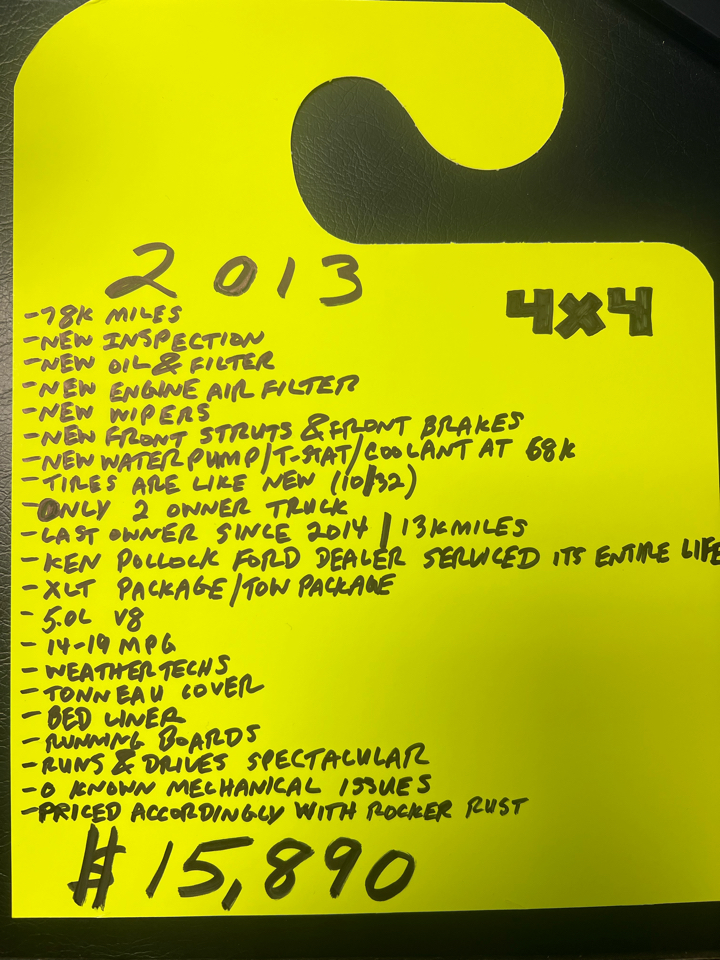 2013
4x4
-78K MILES
-NEW INSPECTION
-NEW OIL & FILTER
-NEW ENGINE AIR FILTER
-NEW WIPERS
-NEW FRONT STRUTS & FRONT BRAKES
-NEW WATER PUMP/T-STAT/COOLANT AT 68K
-TIRES ARE LIKE NEW (10/32)
-ONLY 2 OWNER TRUCK
-LAST OWNER SINCE 2014 | 13K MILES
-KEN POLLOCK FORD DEALER SERVICED ITS ENTIRE LIFE
-XLT PACKAGE/TOW PACKAGE
-5.0L V8
-14-19 MPG
-WEATHERTECHS
-TONNEAU COVER
-BED LINER
-RUNNING BOARDS
-RUNS & DRIVES SPECTACULAR
-0 KNOWN MECHANICAL ISSUES
-PRICED ACCORDINGLY WITH ROCKER RUST
$15,890